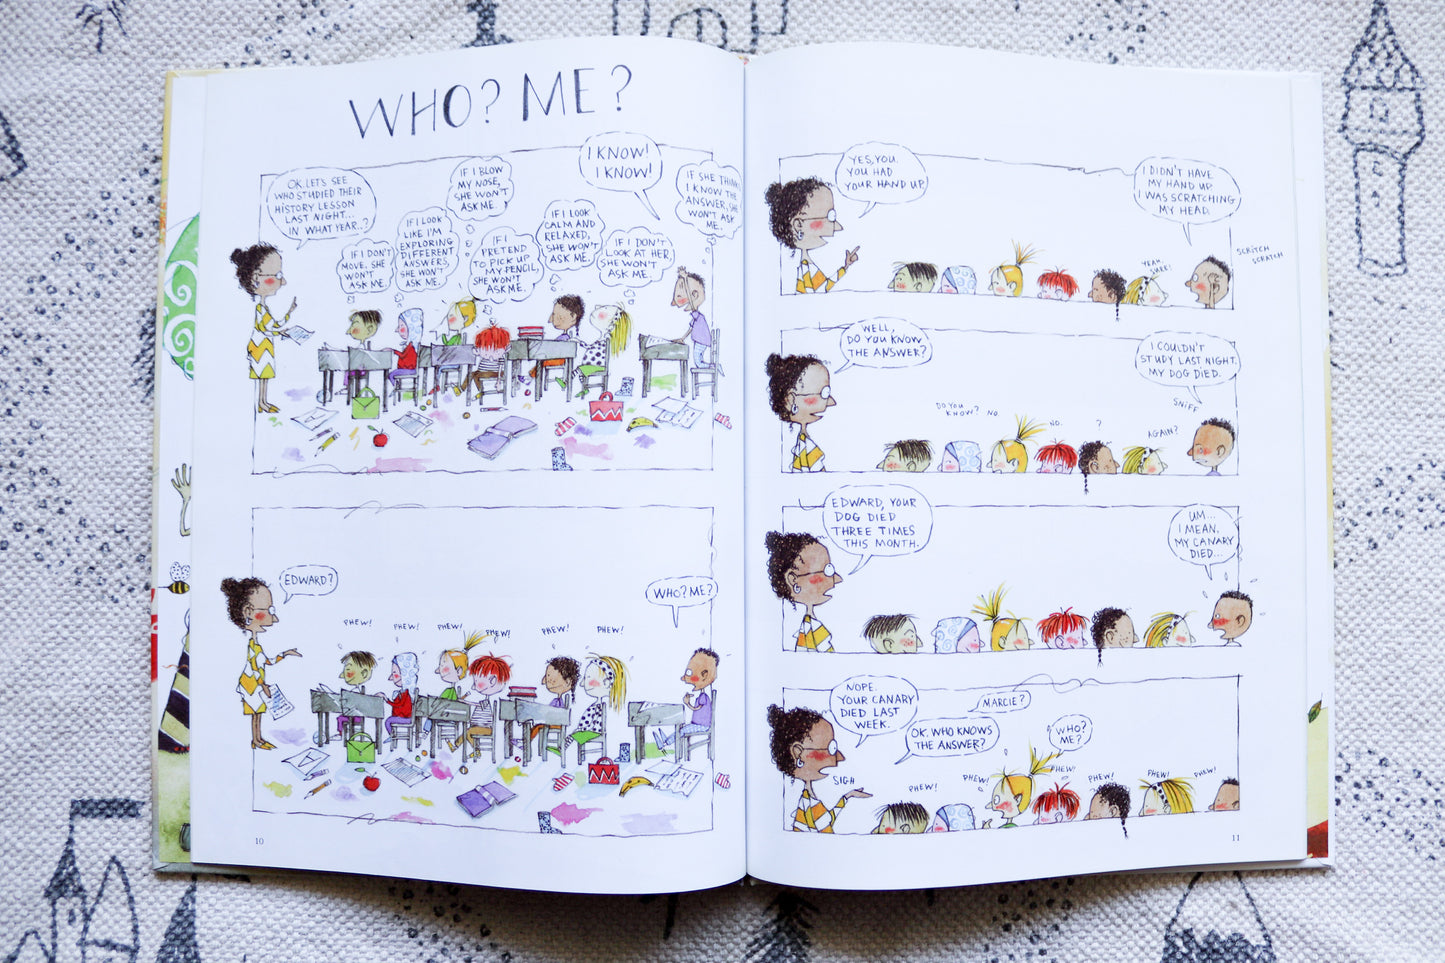 WHO? ME?
OK. LET'S SEE
WHO STUDIED THEIR
HISTORY LESSON
LAST NIGHT...
IN WHAT YEAR..?
IF I DON'T
MOVE, SHE
WON'T
ASK ME.
IF I LOOK
LIKE I'M
EXPLORING
DIFFERENT
ANSWERS,
SHE WON'T
ASK ME.
IF I BLOW
MY NOSE,
SHE WON'T
ASK ME.
IF I
PRETEND
TO PICK UP
MY PENCIL,
SHE WON'T
ASK ME.
IF I LOOK
CALM AND
RELAXED,
SHE WON'T
ASK ME.
IF I DON'T
LOOK AT HER,
SHE WON'T
ASK ME.
I KNOW!
I KNOW!
IF SHE THINKS
I KNOW THE
ANSWER, SHE
WON'T ASK
ME.
EDWARD?
PHEW!
PHEW!
PHEW!
PHEW!
PHEW!
PHEW!
WHO? ME?
10
YES, YOU.
YOU HAD
YOUR HAND UP.
YEAH,
SURE!
I DIDN'T HAVE
MY HAND UP.
I WAS SCRATCHING
MY HEAD.
SCRITCH
SCRATCH
WELL,
DO YOU KNOW
THE ANSWER?
DO YOU
KNOW?
NO.
NO.
?
AGAIN?
I COULDN'T
STUDY LAST NIGHT.
MY DOG DIED.
SNIFF
EDWARD, YOUR
DOG DIED
THREE TIMES
THIS MONTH.
UM...
I MEAN.
MY CANARY
DIED...
NOPE.
YOUR CANARY
DIED LAST
WEEK.
SIGH
OK. WHO KNOWS
THE ANSWER?
MARCIE?
WHO?
ME?
PHEW!
PHEW!
PHEW!
PHEW!
PHEW!
PHEW!
11